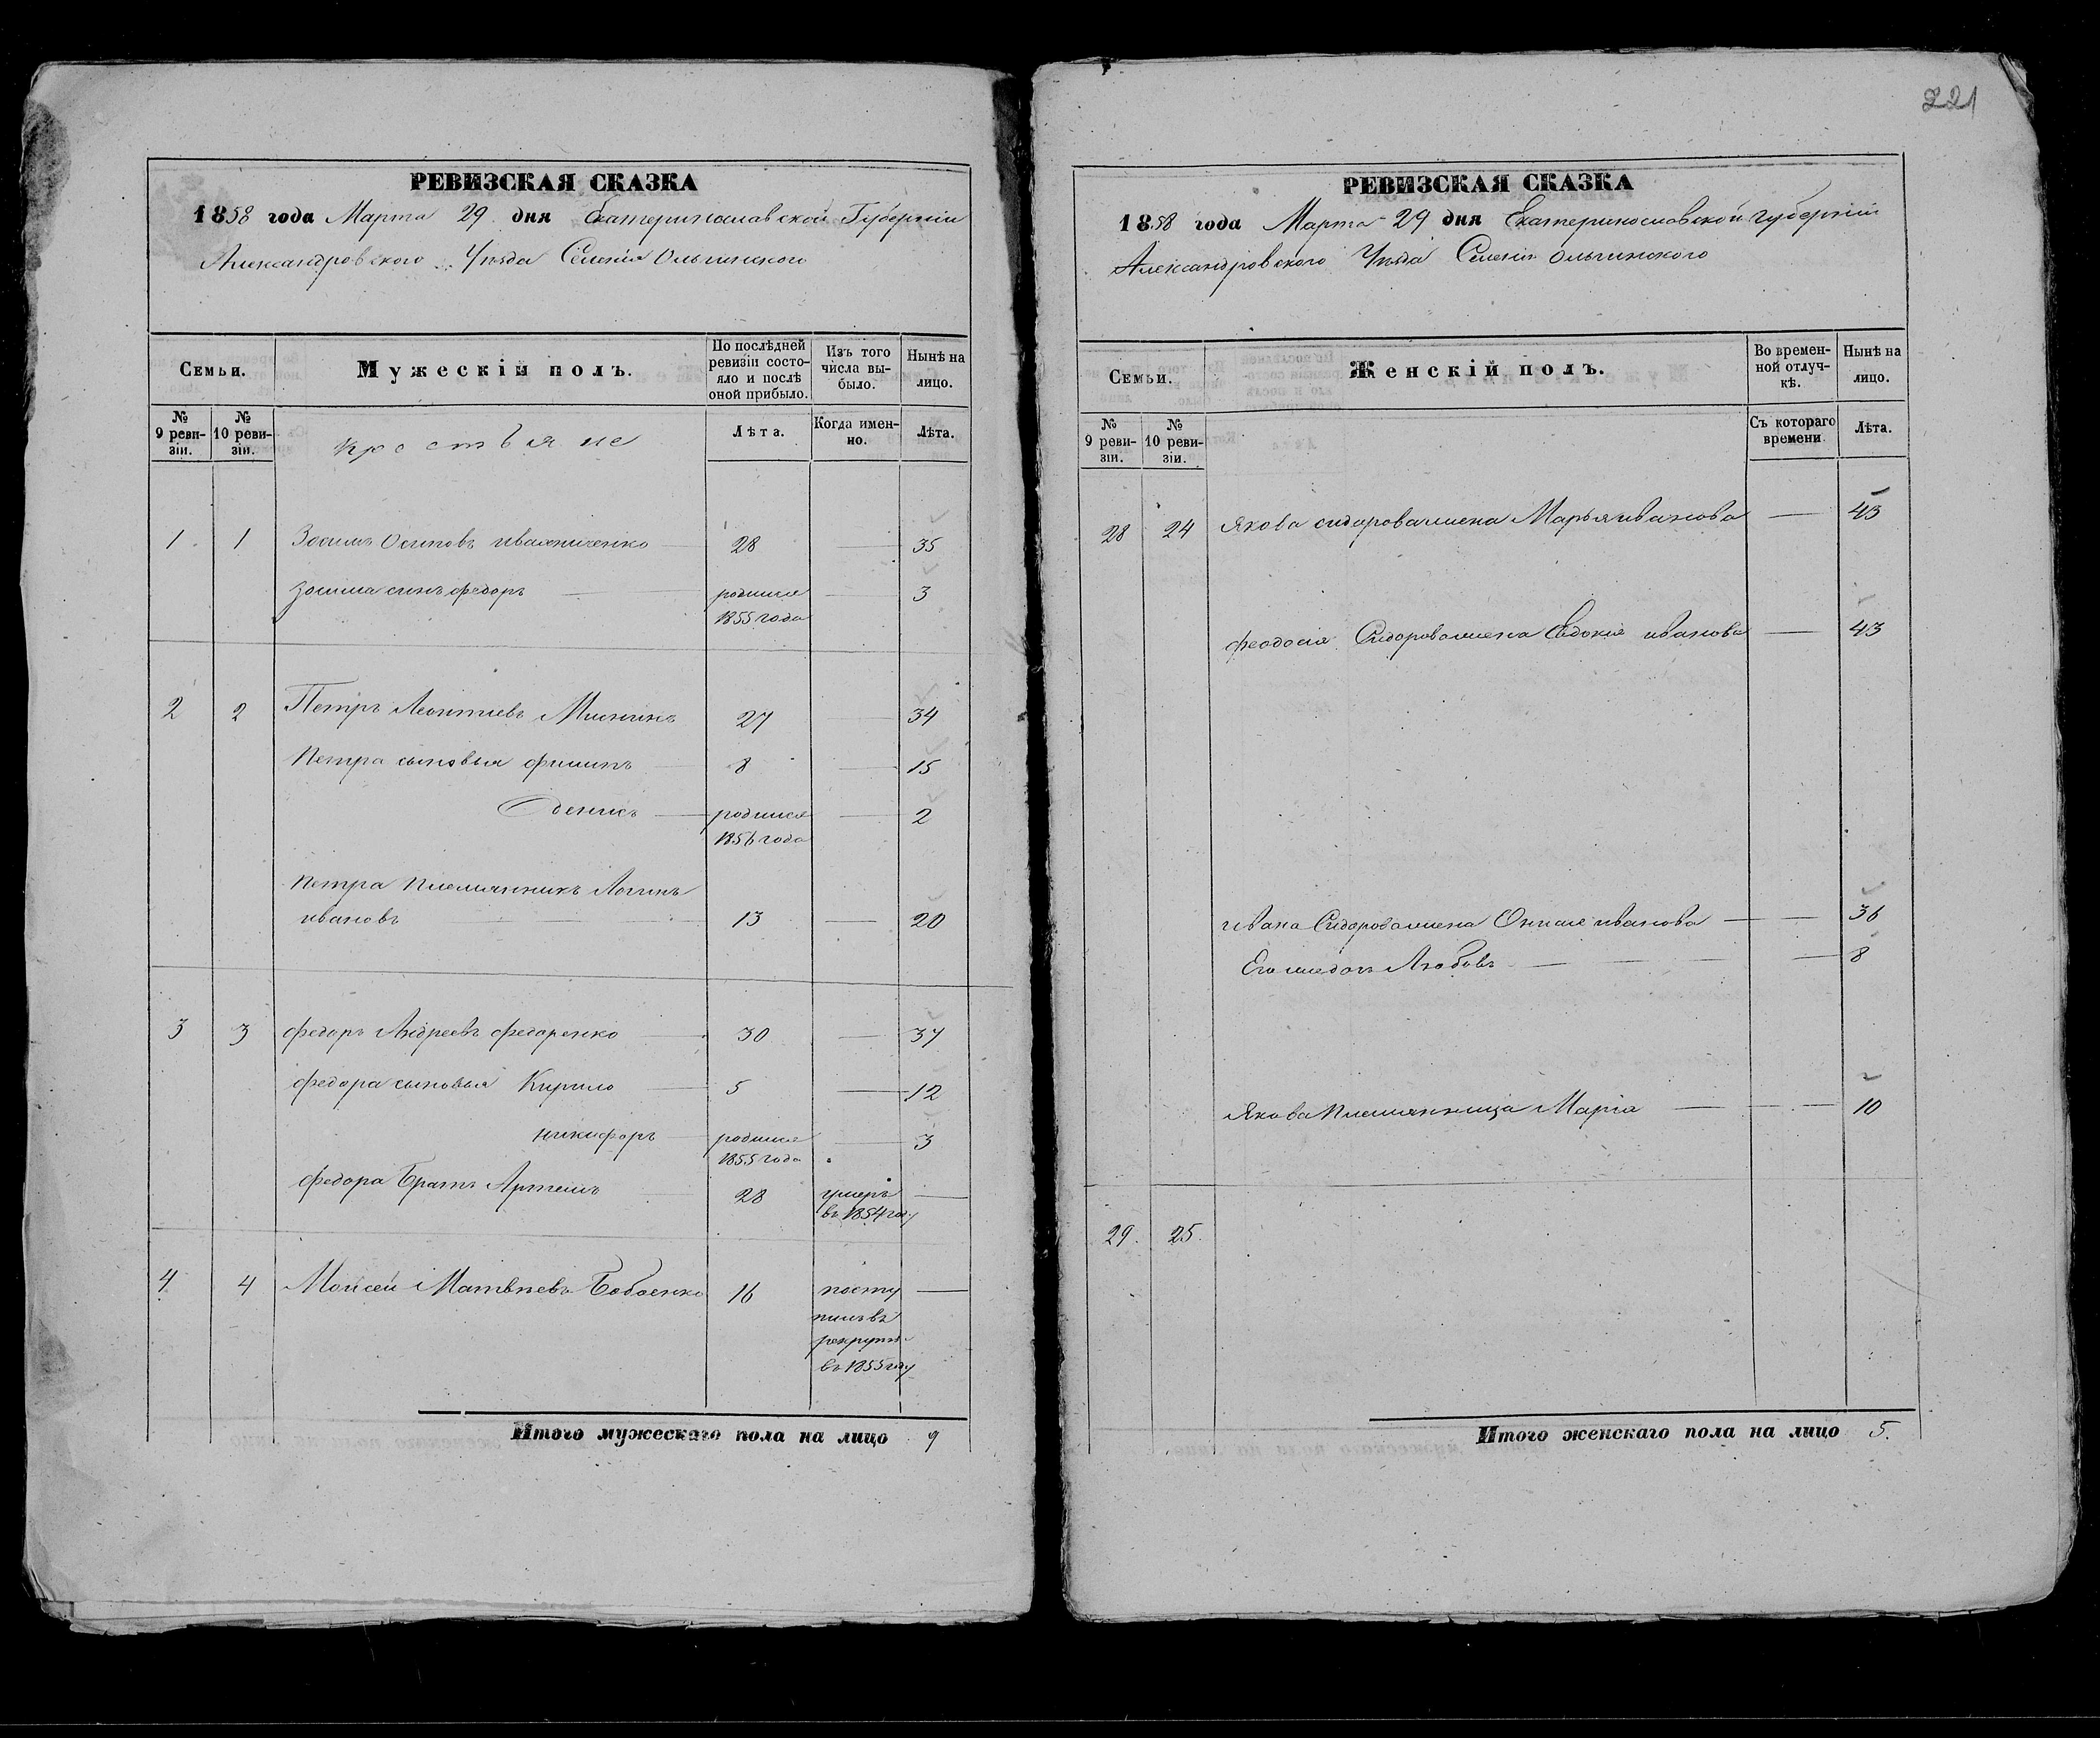 221
РЕВИЗСКАЯ СКАЗКА
1858 года Марта 29 дня Екатеринославской Губерніи
Александровского Уѣзда Селенія Ольгинского
Семьи.
Мужескій полъ.
По послѣдней ревизіи состояло и послѣ оной прибыло.
Изъ того числа выбыло.
Нынѣ на лицо.
№ 9 ревизіи.
№ 10 ревизіи.
крестьяне
Лѣта.
Когда именно.
Лѣта.
1 1 Зосимъ Осиповъ 28 — 35
Зосима сынъ федоръ — родился 1855 года — 3
2 2 Петръ Леонтіевъ 27 — 34
Петра сыновья филипъ — 8 — 15
Денисъ — родился 1856 года — 2
Петра племянникъ Логинъ
ивановъ — 13 — 20
3 3 федоръ Андреевъ федоренко — 30 — 37
федора сыновья Кирило — 5 — 12
никифоръ — родился 1855 года — 3
федора Братъ Артемъ — 28 умеръ въ 1854 году —
4 4 Мойсей Матвѣевъ 16 поступилъ въ рекруты въ 1855 году —
Итого мужескаго пола на лицо 9
РЕВИЗСКАЯ СКАЗКА
1858 года Марта 29 дня Екатеринославской Губерніи
Александровского Уѣзда Селенія Ольгинского
Семьи.
Женскій полъ.
Во временной отлучкѣ.
Нынѣ на лицо.
№ 9 ревизіи.
№ 10 ревизіи.
Съ котораго времени
Лѣта.
28 24 Якова сидорова жена Марья иванова — 43
феодосія Сидорова жена Евдокія иванова — 43
ивана Сидорова жена иванова — 36
Его дочь Любовь — 8
Якова племянница Марія — 10
29. 25.
Итого женскаго пола на лицо 5.